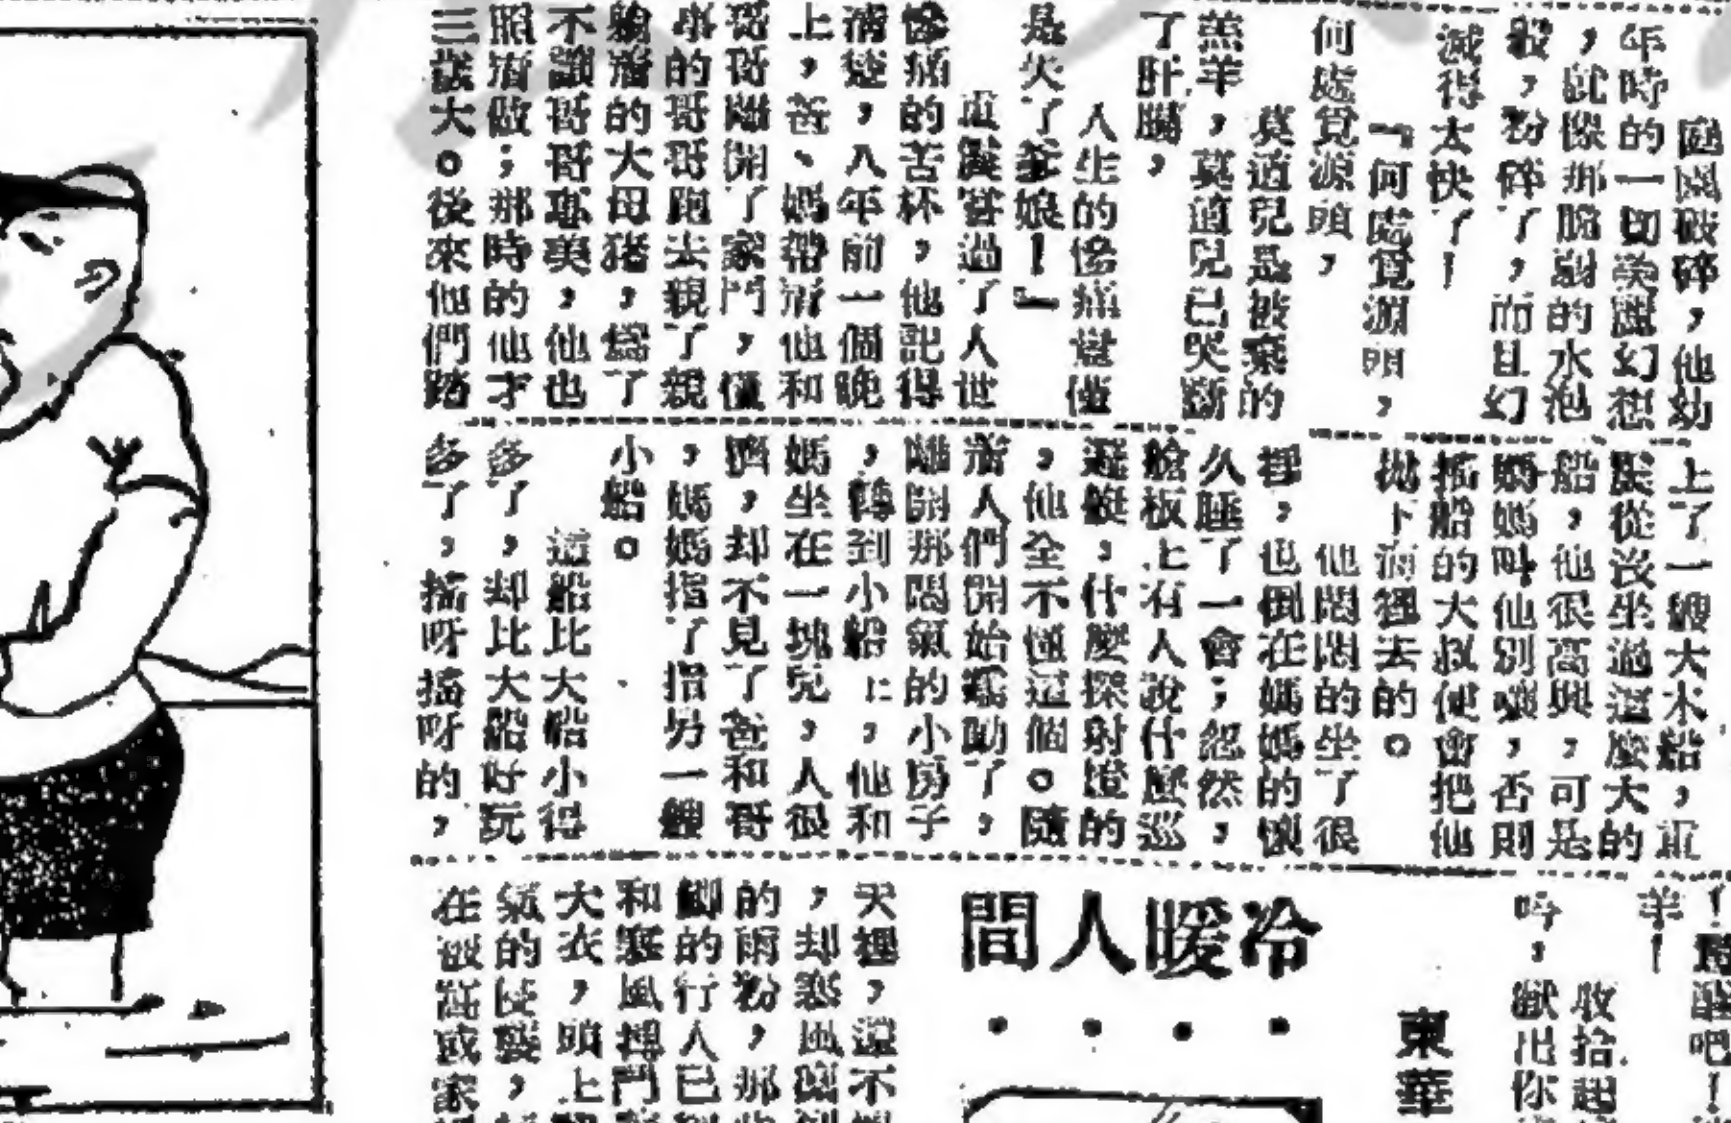 庭園破碎，他幼
年時的一切美麗幻想
，就像那脆弱的水泡
般，粉碎了，而且幻
滅得太快了！
『何處覓源頭，
何處覓源頭，
莫道兒是被棄的
羔羊，莫道兒已哭斷
了肝腸，
人生的慘痛豈僅
是失了爹娘！』
重嘗過了人世
慘痛的苦杯，他記得
清楚，八年前一個晚
上，爸、媽帶着他和
哥哥離開了家門，僅
小的哥哥跑去親了親
躺着的大母猪，爲了
不讓哥哥專美，他也
照着做；那時的他才
三歲大。後來他們踏
上了一艘大木船，重
來從沒坐過這麼大的
船，他很高興，可是
媽媽叫他別嚷，否則
搖船的大叔便會把他
拋下海裡去的。
他悶悶的坐了很
久睡了一會；忽然，
裡，也倒在媽媽的懷
艙板上有人說什麼巡
邏艇，什麼探射燈的
，他全不懂這個。隨
着人們開始蠕動了，
離開那悶氣的小房子
，轉到小船上，他和
媽坐在一塊兒，人很
擠，却不見了爸和哥
，媽媽指了指另一艘
小船。
這船比大船小得
多了，却比大船好玩
多了，搖呀搖呀的，
！醒吧！
羊！
收拾起
吟，獻出你
東華
冷暖人間
天裡，還不
，却寒風
的雨粉，那
脚的行人已
和寒風搏鬥
大衣，頭上
氣的
在 或家